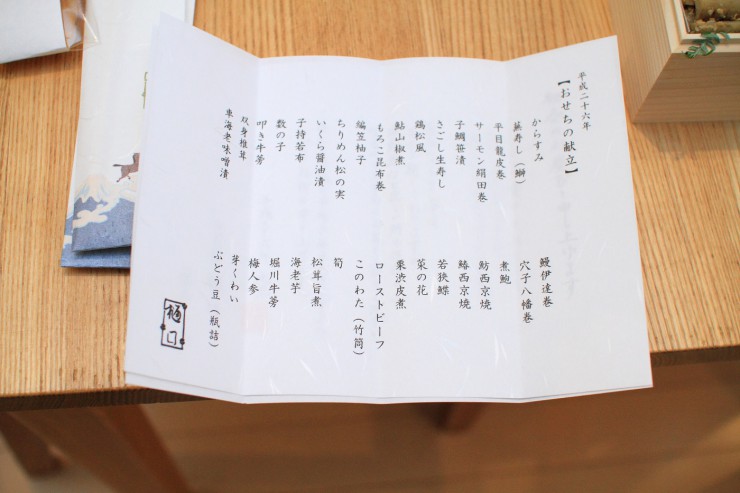 平成二十六年
【おせちの献立】
からすみ
蕪寿し（鰤）
平目龍皮巻
サーモン絹田巻
子鯛笹漬
きごし生寿し
鶏松風
鮎山椒煮
もろこ昆布巻
編笠柚子
ちりめん松の実
いくら醤油漬
子持若布
数の子
叩き牛蒡
双身椎茸
車海老味噌漬
鰻伊達巻
穴子八幡巻
煮鮑
魴西京焼
鰆西京焼
若狭鰈
菜の花
栗渋皮煮
ローストビーフ
このわた（竹筒）
筍
松茸旨煮
海老芋
堀川牛蒡
梅人参
芽くわい
ぶどう豆（瓶詰）
樋口